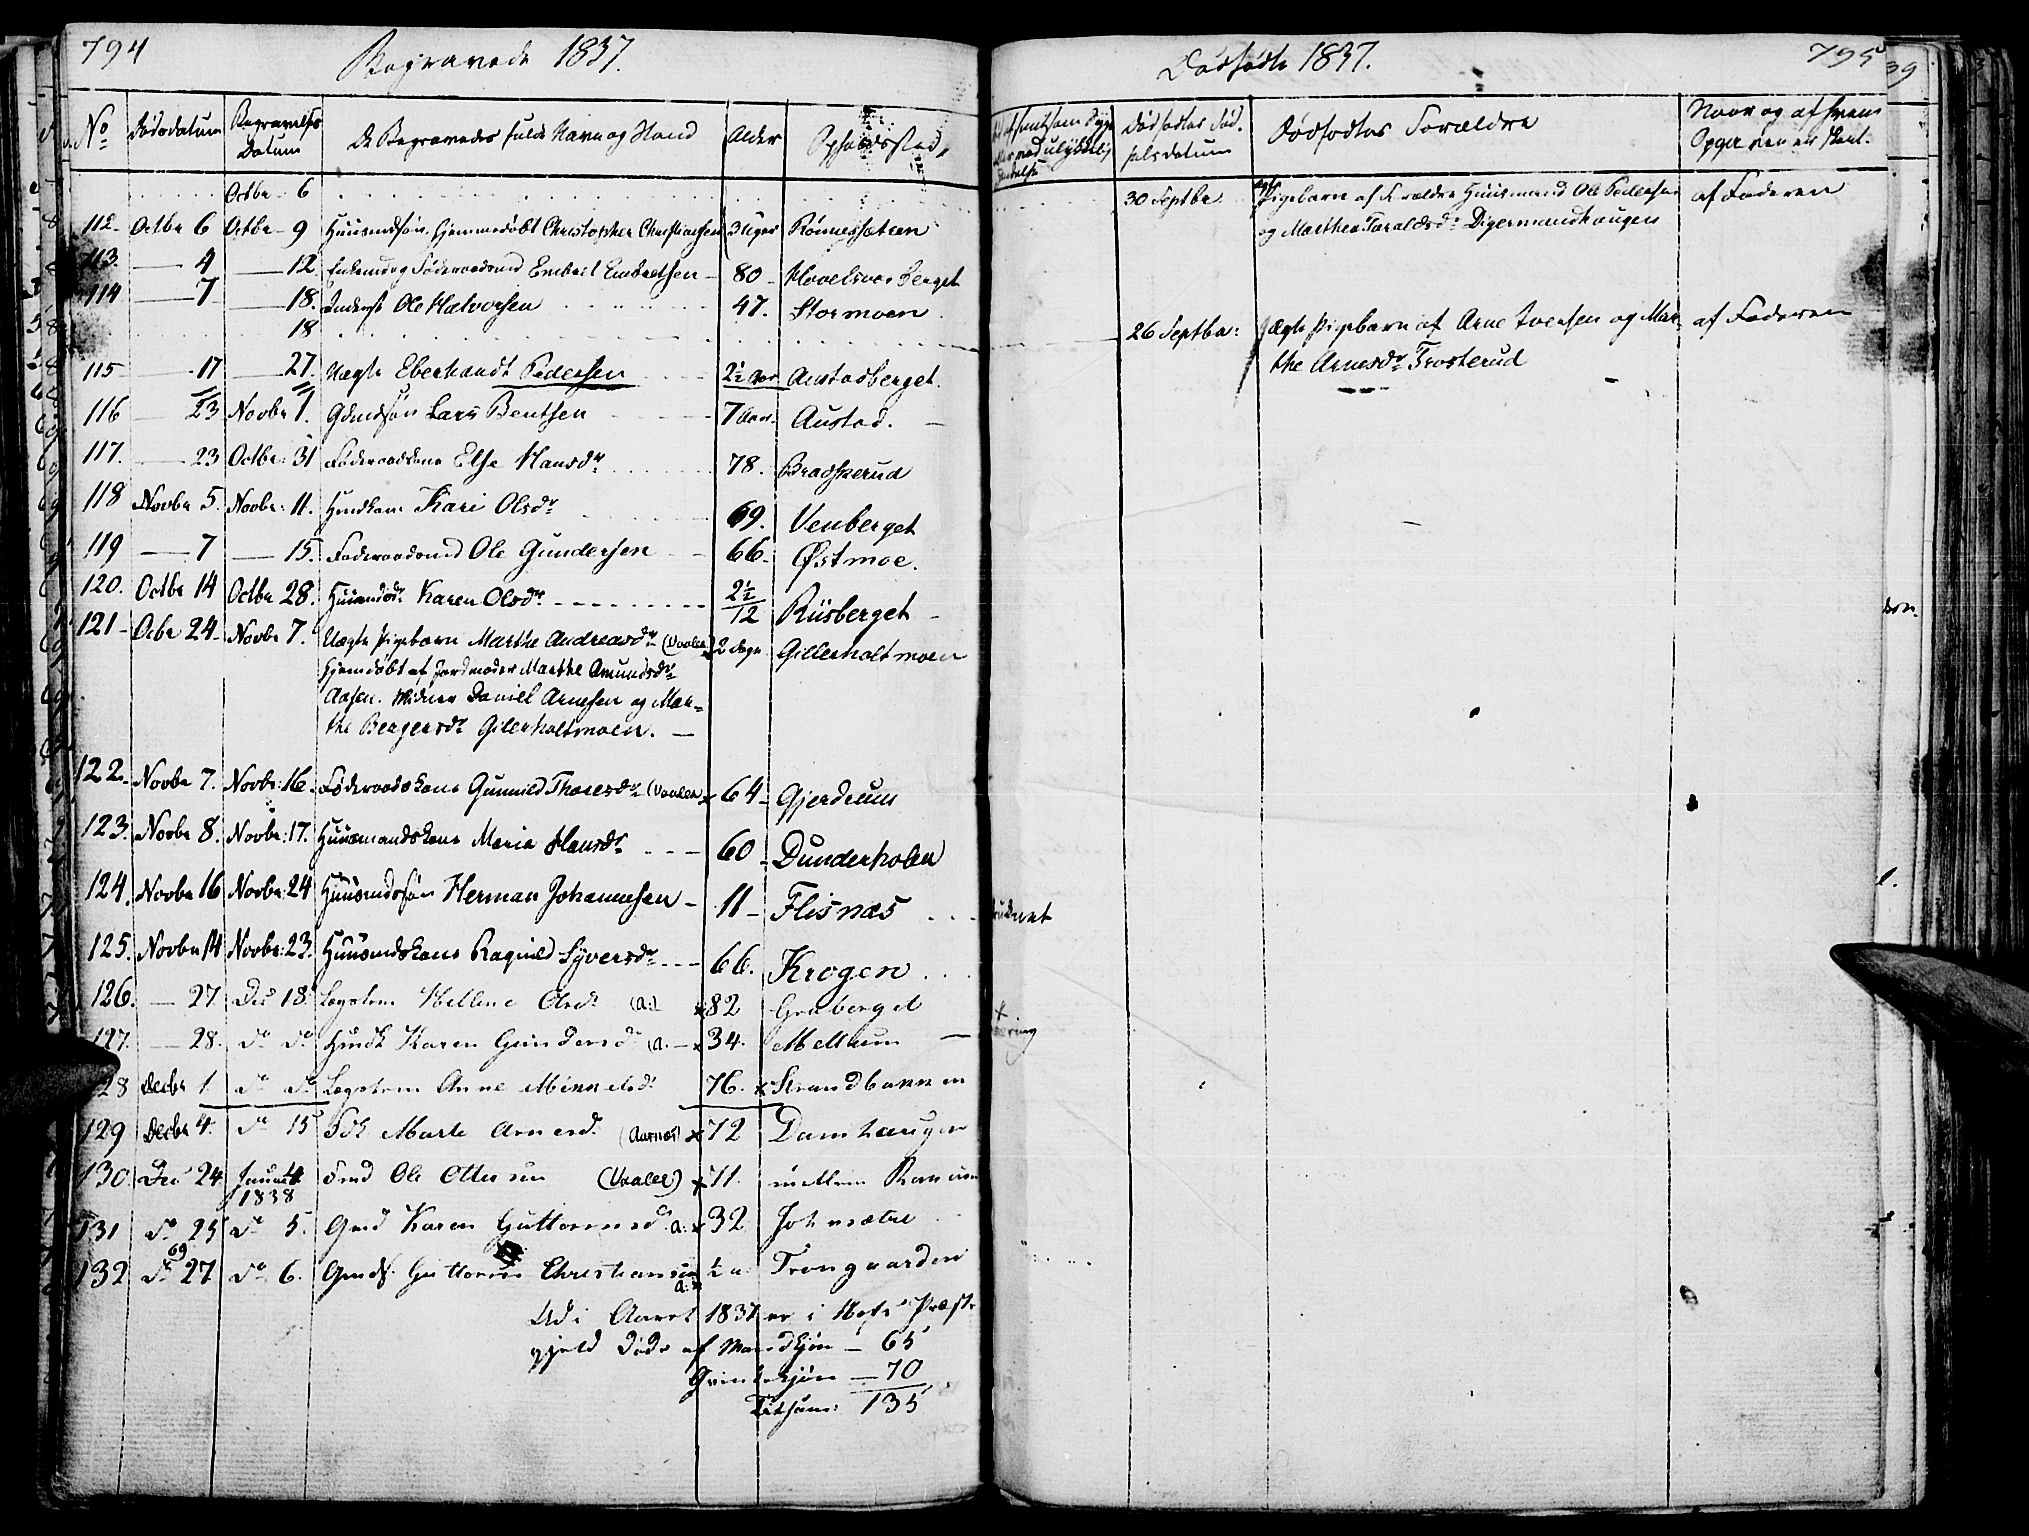 794
Begravede 1837.
No Dødsdatum Begravelses Datum De Begravedes fulde Navn og Stand Alder Opholdssted
Octbr 6
112 Octbr 6 Octbr 9 Huusmdssøn hjemmedøbt Christopher Christiansen 3 Uger Rönnessætren
113. — 4 — 12 Enkemd og Föderaadsmd Embret Embretsen 80 berget
114 — 7 — 18. Inderst Ole Halvorsen 47. Stormoen
18
115 — 17 — 27. Uægte Eberhardt Pedersen 2½ Aar Austadberget.
116 — 23 Novbr 1. Gdmdssøn Lars Bentsen 7 Aar. Austad.
117. — 23 Octbr: 31 Föderaadskone Else Hansdr 78. Braskerud
118 Novbr 5. Novbr: 11. Kari Olsdr 69. Venberget
119 — 7 — 15. Föderaadsmd Ole Gundersen 66. Østmoe.
120. Octbr 14 Octbr 28. Huusmdsdr Karen Olsdr 2½/12 Riisberget
121 Ocbr 24 Novbr 7. Uægte Pigebarn Marthe Andreasdr (Vaaler) 2 Dage Gillerholtmoen
hjemdøbt af Jordmoder Marthe Amundsdr
Aasen. Vidner Daniel Arnesen og Mar=
the Bergersdr Gilerholtmoen.
122. Novbr 7. Novbr: 16. Föderaadskone Gunnild Thoresdr (Vaaler x 64 Gjerdrum
123. Novbr 8. Novbr: 17. Huusmandskone Maria Hansdr 60 Dunderholen
124. Novbr 16 Novbr: 24 Huusmdssön Herman Johannesen 11 Flisnæs
125. Novbr 14 Novbr: 23. Huusmdskone Ragnild Syversdr 66. Krogen
126. — 27 Dec 18. Lægdslem Hellene Olsdr (a:) x 82 Graberget
127. — 28. do do Karen Gundersdr (a. x 34. Mellum
128 Decbr 1. do do Lægdslem Anne Mikkelsdr 76. x Strandbakken
129 Decbr 4. do 15 Marte Arnesd. (Aarnæs) x 72 Damhaugen
130. Dec 24 Januar 4 1838 Ole Ottersen (Vaaler) x 71. mellem
131 do 25 do 5. Gmd Karen Guttormsd. a: x 32 Johnsætre
132 do 27 do 6. Gmds. Guttorm Christiansen a: x ½ a. Trongaarden
Ud i Aaret 1837 er i Hofs Præste
gjeld Døde af Mandkjön — 65
Qvindekjön — 70
Tilsam: 135
Dödfødte 1837.
795
Dødfødtes Fød-
selsdatum Dødfødtes Forældre Naar og af hvem
Opgivenen er skeet.
30 Septbr Pigebarn af Forældre Huusmand Ole Pedersen af Faderen
og Marthea Taraldsdr Digermundhaugen
26 Septbr: Ægte Pigebarn af Arne Iversen og Mar- af Faderen
the Arnesdr Trosterud